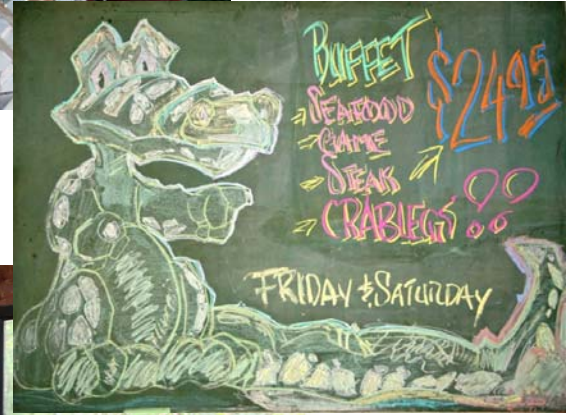 BUFFET
$24.95
SEAFOOD
GAME
STEAK
CRABLEGS !!
FRIDAY & SATURDAY